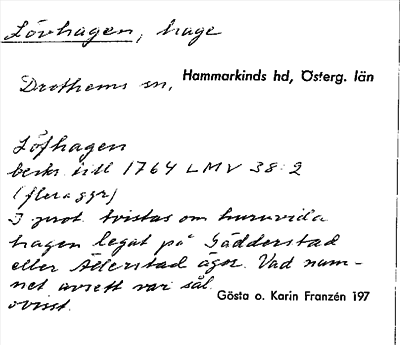 Lövhagen, hage
Drothems sn, Hammarkinds hd, Österg. län
Löfhagen
beskr. till 1764 LMV 38:2
(flera ggr)
I prot. tvistas om huruvida
hagen legat på Gädderstad
eller Ållerstad ägor. Vad nam-
net avsett var sål.
ovisst.
Gösta o. Karin Franzén 197